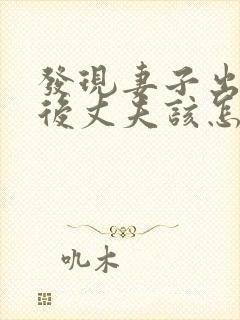 發現妻子出
後丈夫該怎
吼木